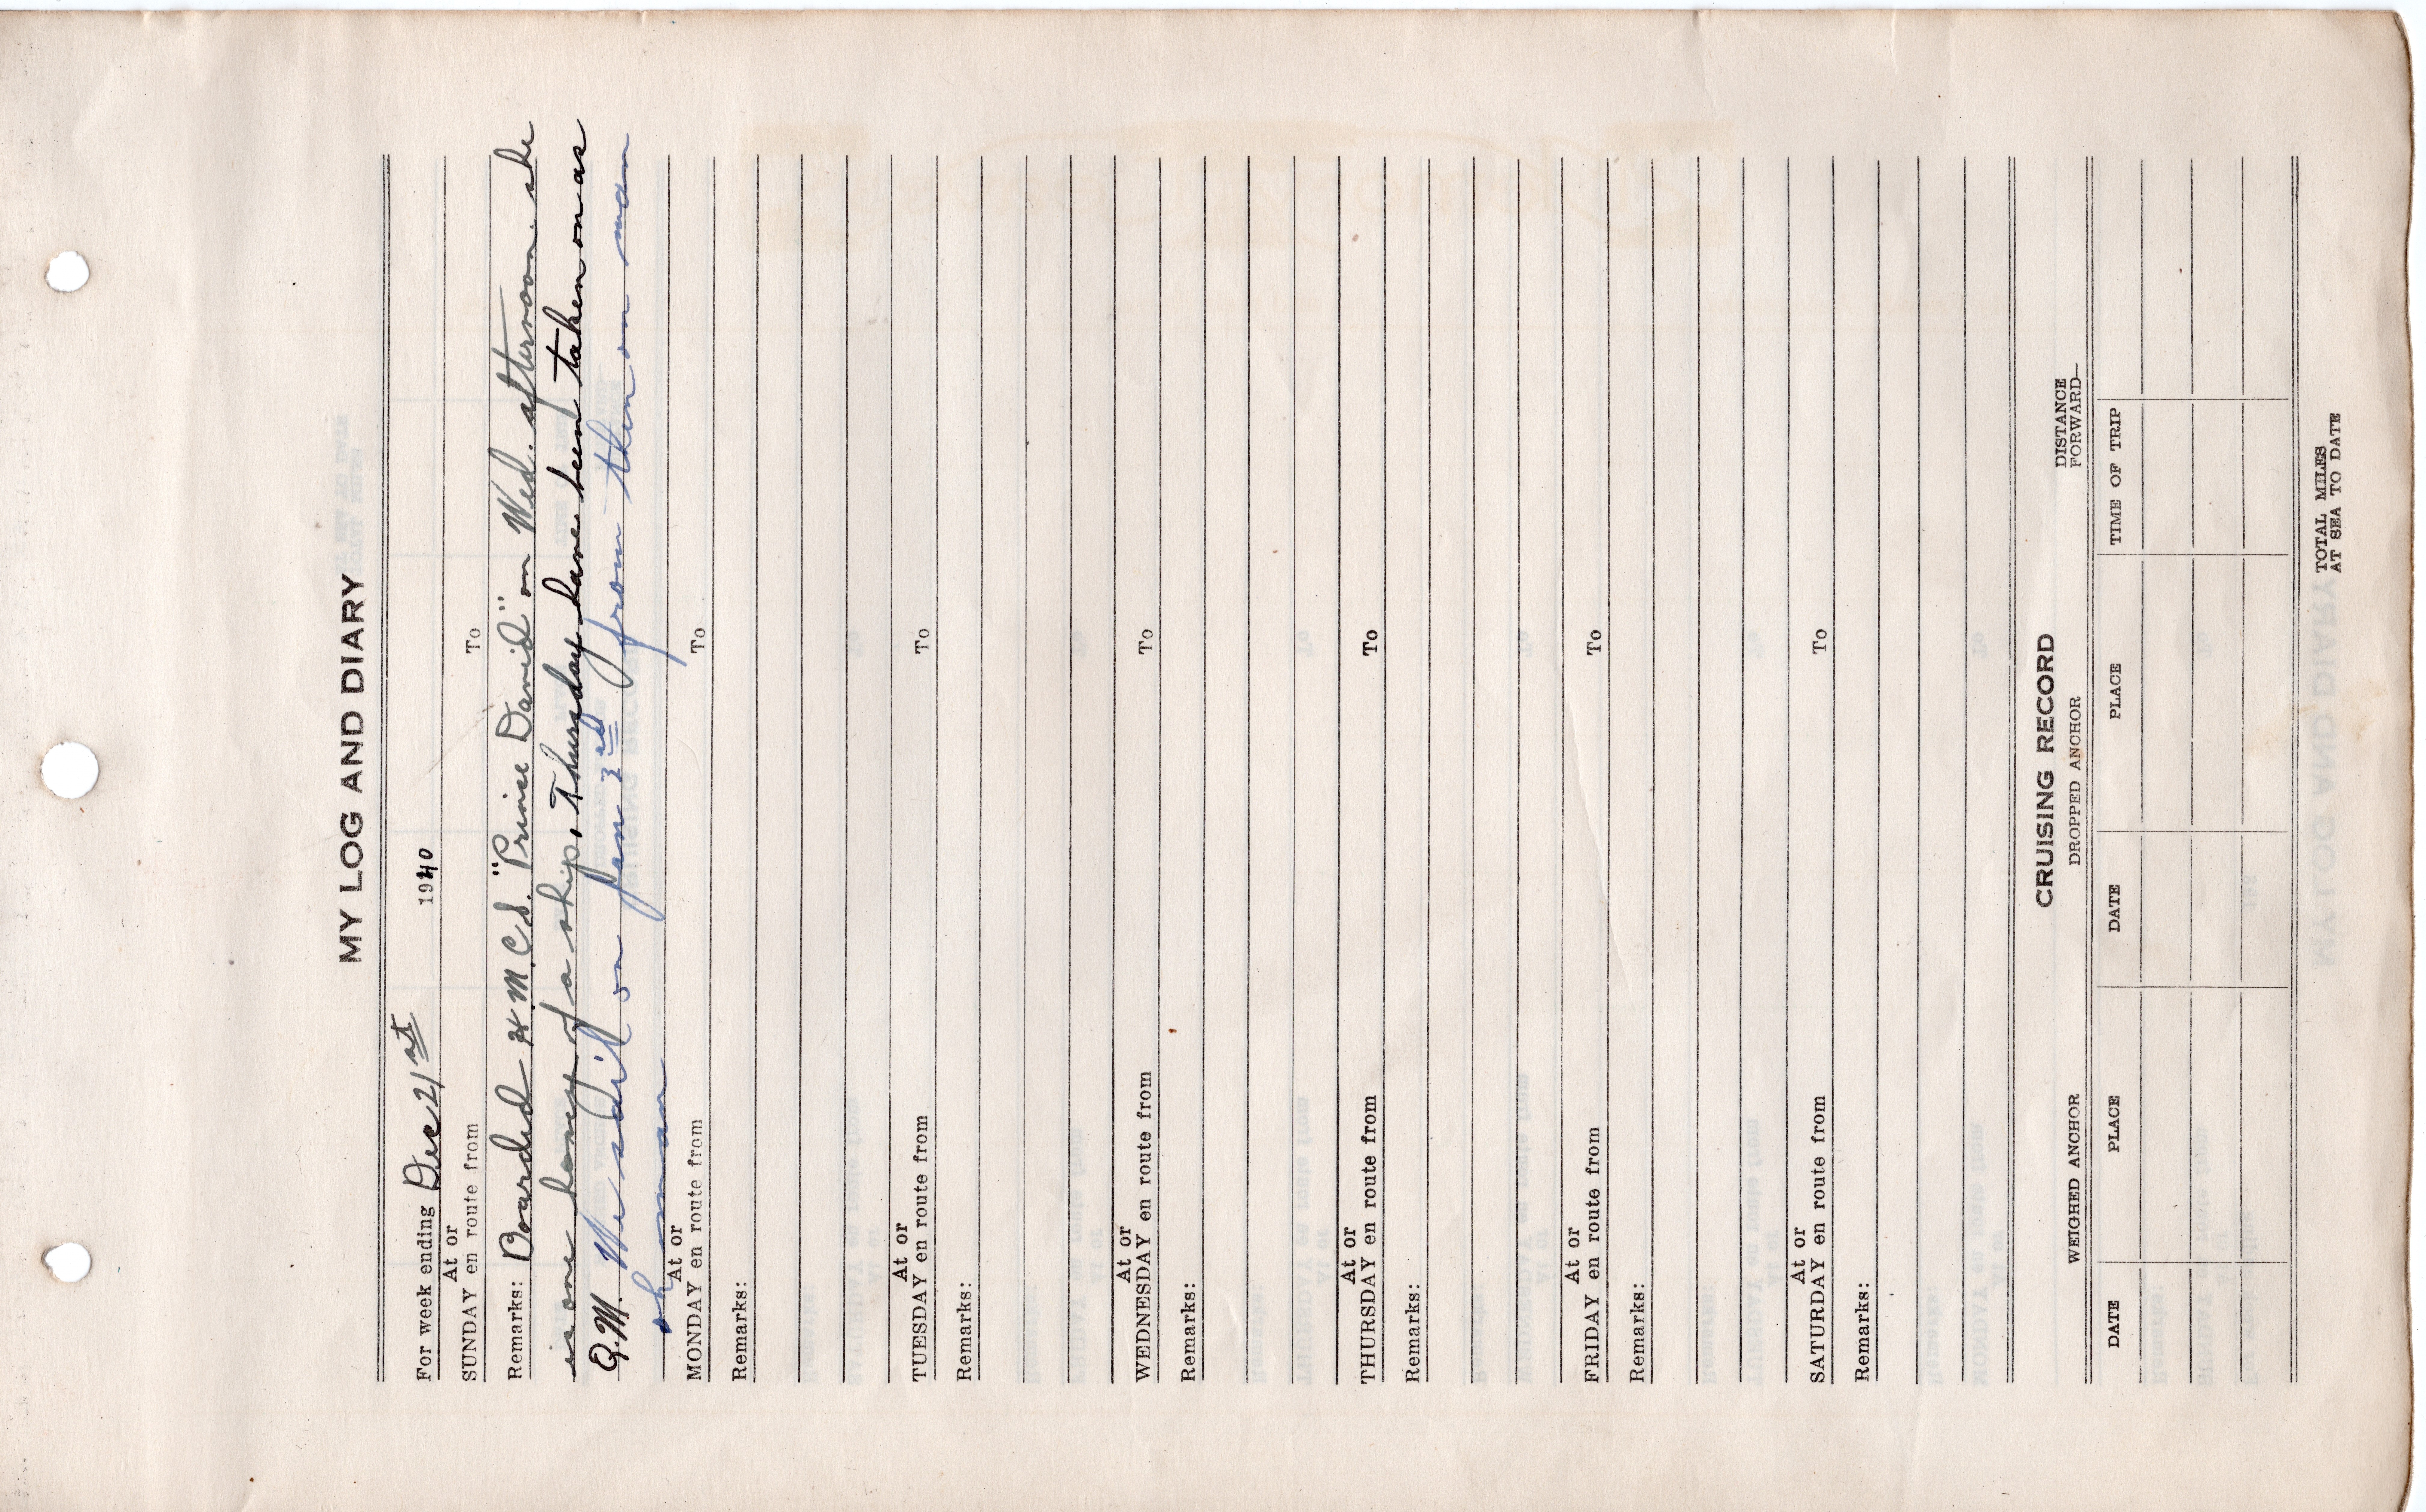 MY LOG AND DIARY
For week ending Dec 21st 1940
At or
SUNDAY en route from To
Remarks: Boarded H.M.C.S. "Prince David" on Wed. afternoon. she
is one honey of a ship, Thursday have been taken on as
Q.M. We sail on Jan 3rd from then on man
oh man
At or
MONDAY en route from To
Remarks:
At or
TUESDAY en route from To
Remarks:
At or
WEDNESDAY en route from To
Remarks:
At or
THURSDAY en route from To
Remarks:
At or
FRIDAY en route from To
Remarks:
At or
SATURDAY en route from To
Remarks:
CRUISING RECORD
WEIGHED ANCHOR DROPPED ANCHOR DISTANCE
FORWARD—
DATE PLACE DATE PLACE TIME OF TRIP
TOTAL MILES
AT SEA TO DATE